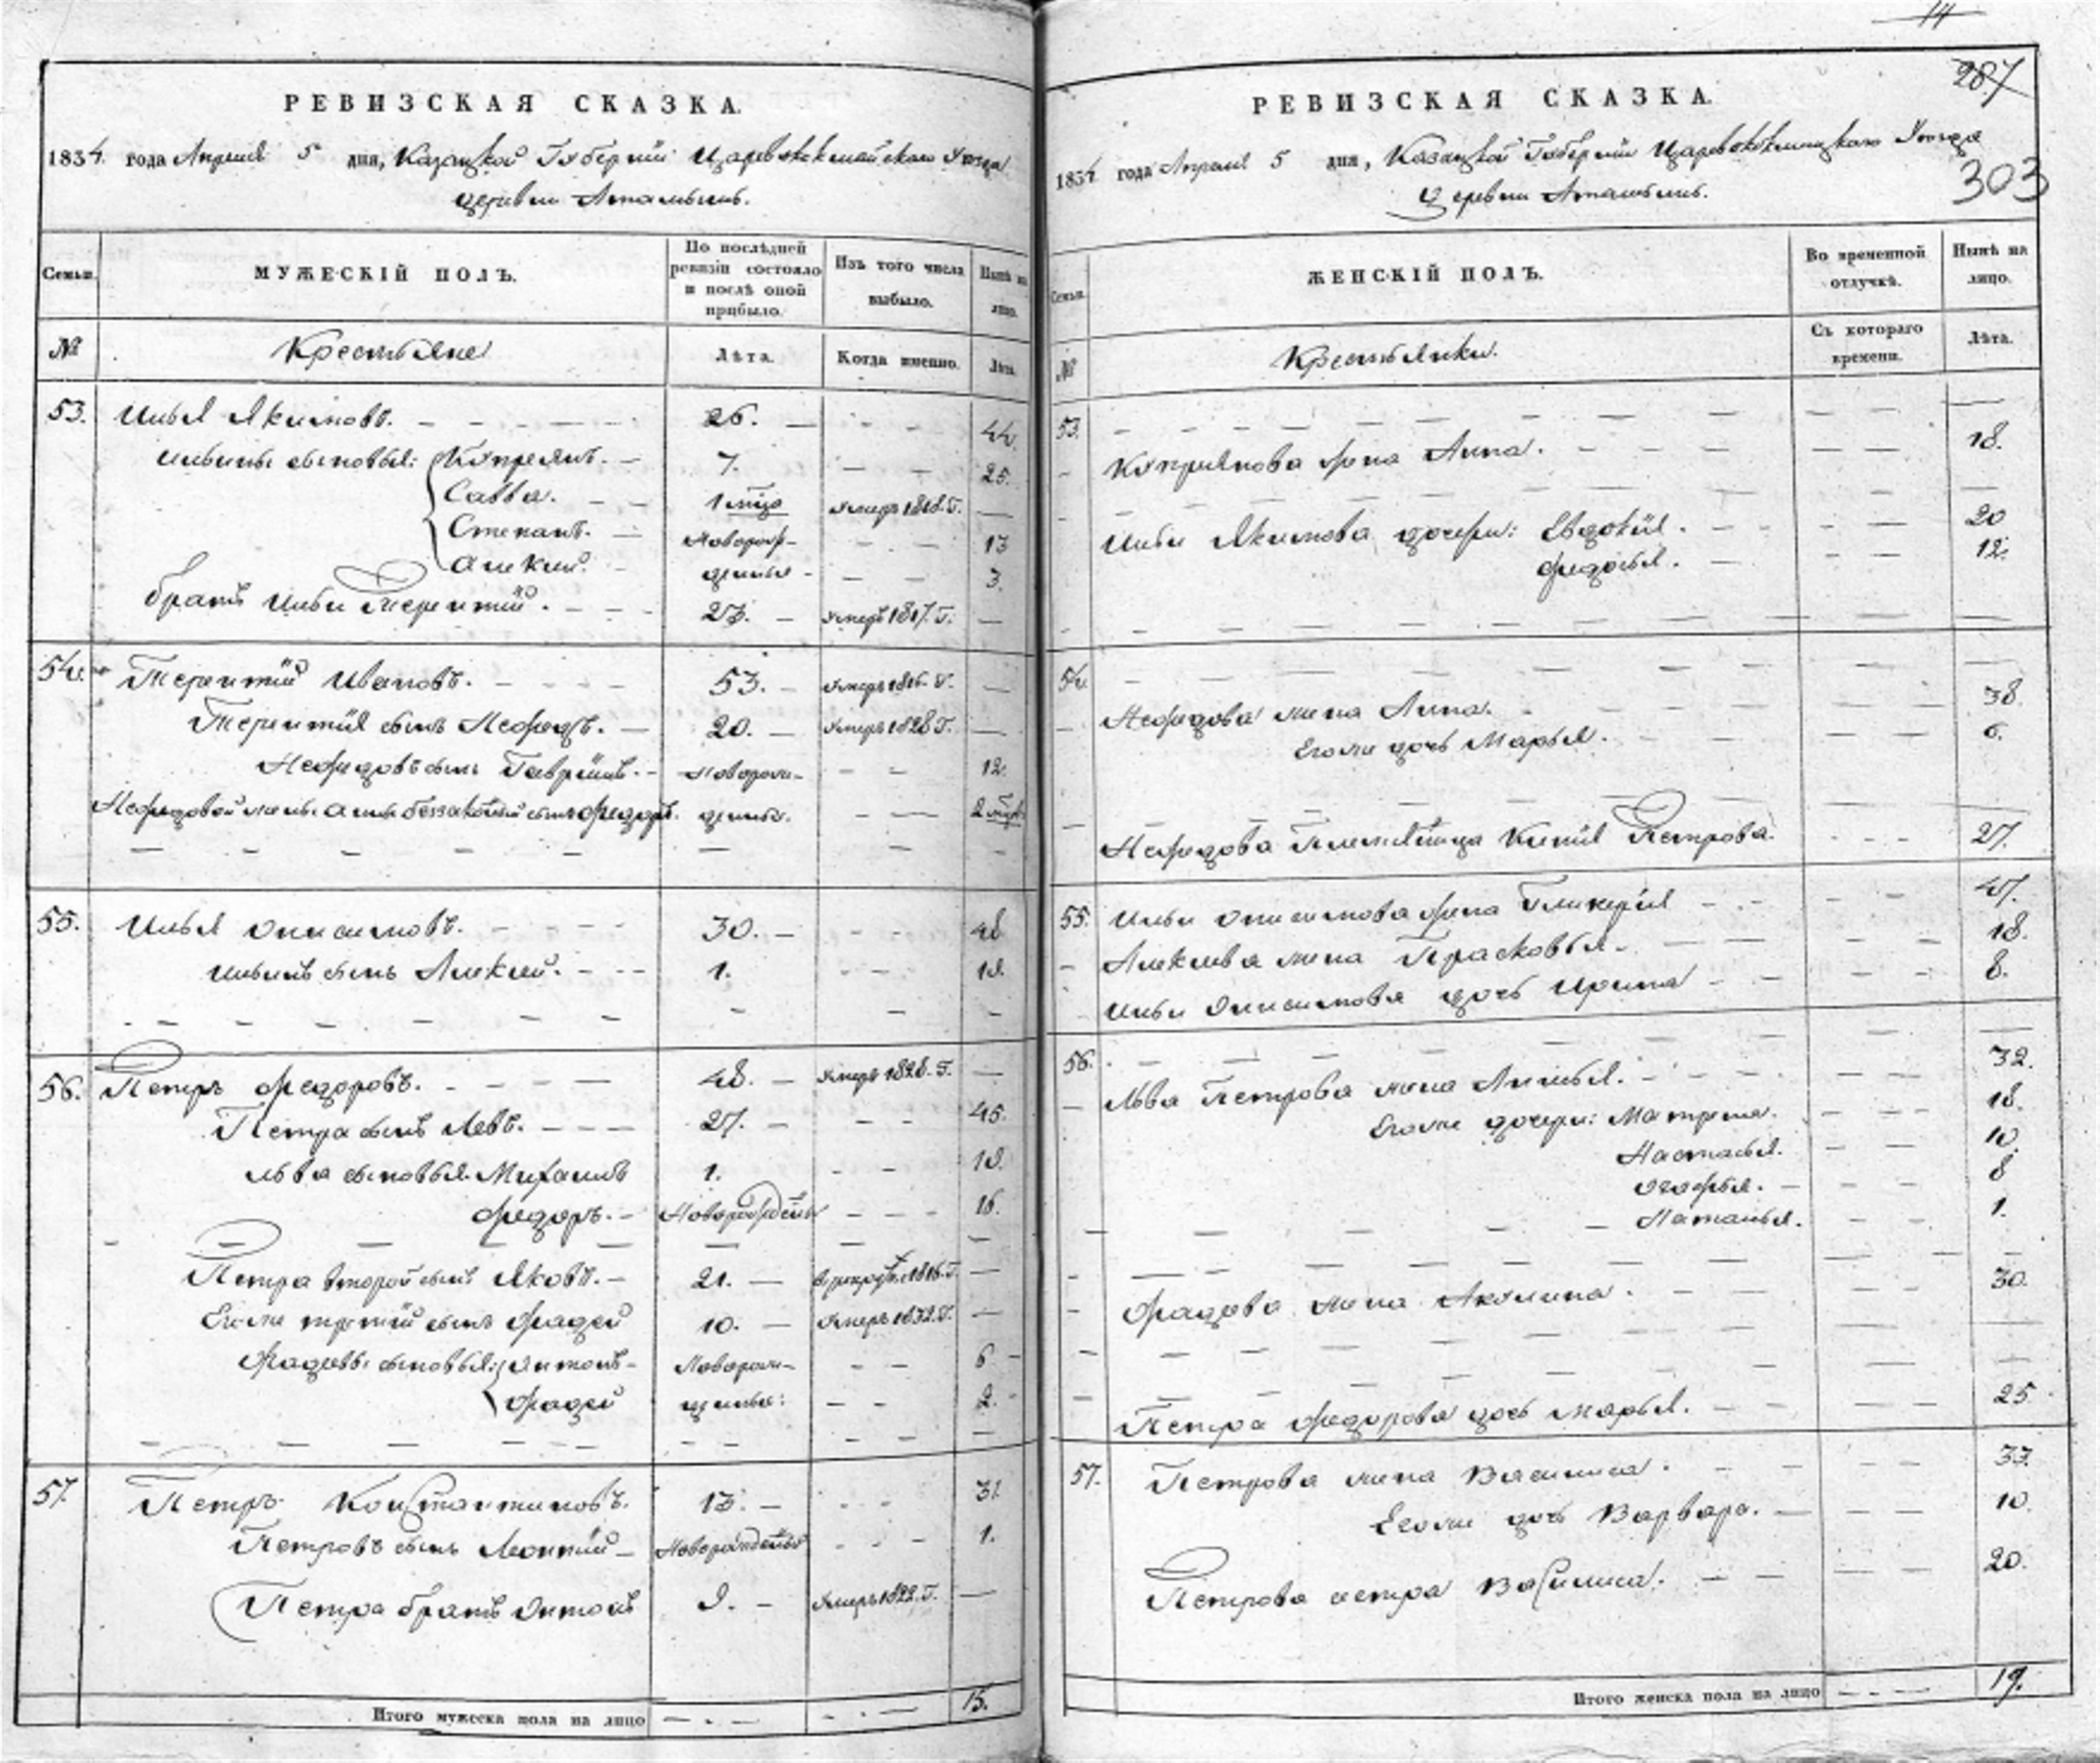 РЕВИЗСКАЯ СКАЗКА.
1834 года Апреля 5 дня, Казанской Губернiи Царевококшайскаго Уезда
деревни
Семьи.
МУЖЕСКІЙ ПОЛЪ.
По послѣдней ревизіи состояло и послѣ оной прибыло.
Изъ того числа выбыло.
Нынѣ на лицо.
№
Крестьяне
Лѣта.
Когда именно.
Лѣта.
53. Илья Якимовъ. 26. 44.
Ильины сыновья: Купреянъ. 7. 25.
Савва. 1 мца умеръ 1818. Г.
Степанъ. Новорож- 13
Алексей. денные 3.
братъ Ильи Терентiй. 23. умеръ 1817. Г.
54. Терентiй Ивановъ. 53. умеръ 1816. Г.
Терентiя сынъ Нефедъ. 20. умеръ 1828 Г.
Нефедовъ сынъ Гаврiилъ. Новорож- 12.
Нефедовой жены Анны сынъ Федоръ. денные. 2
55. Илья Онисимовъ. 30. 48
Ильинъ сынъ Алексей. 1. 19.
56. Петръ Федоровъ. 48. умеръ 1828. Г.
Петра сынъ Левъ. 27. 45.
Льва сыновья Михаилъ 1. 19.
Федоръ. Новорожденъ 16.
Петра второй сынъ Яковъ. 21. 1816. Г.
Егоже третiй сынъ Фадей 10. умеръ 1832. Г.
Фадеевы сыновья: Антонъ Новорож- 6
Фадей денные: 2.
57. Петръ Константиновъ. 13. 31.
Петровъ сынъ Леонтiй Новорожденъ 1.
Петра братъ Антонъ 9. умеръ 1822. Г.
Итого мужеска пола на лицо 15.
14
287
303
РЕВИЗСКАЯ СКАЗКА.
1834 года Апреля 5 дня, Казанской Губернiи Царевококшайскаго Уезда
деревни
Семьи.
ЖЕНСКІЙ ПОЛЪ.
Во временной отлучкѣ.
Нынѣ на лицо.
№
Крестьянки.
Съ котораго времени.
Лѣта.
53.
Куприянова жена Анна. 18.
Ильи Якимова дочери: Евдокiя. 20
Федосья. 12.
54.
Нефедова жена Анна. 38.
Егоже дочь Марья. 6.
Нефедова племянница Ксенiя Петрова. 27.
55. Ильи Онисимова жена Гликерiя 47.
Алексея жена Прасковья 18.
Ильи Онисимова дочь Ирина 8.
56.
Льва Петрова жена 32.
Егоже дочери: Матрена. 18.
Настасья. 10.
Агафья. 8
Наталья. 1.
Фадеева жена Акулина. 30.
Петра Федорова дочь Марья. 25
57. Петрова жена Василиса. 33.
Егоже дочь Варвара. 10.
Петрова сестра Василиса. 20.
Итого женска пола на лицо 19.